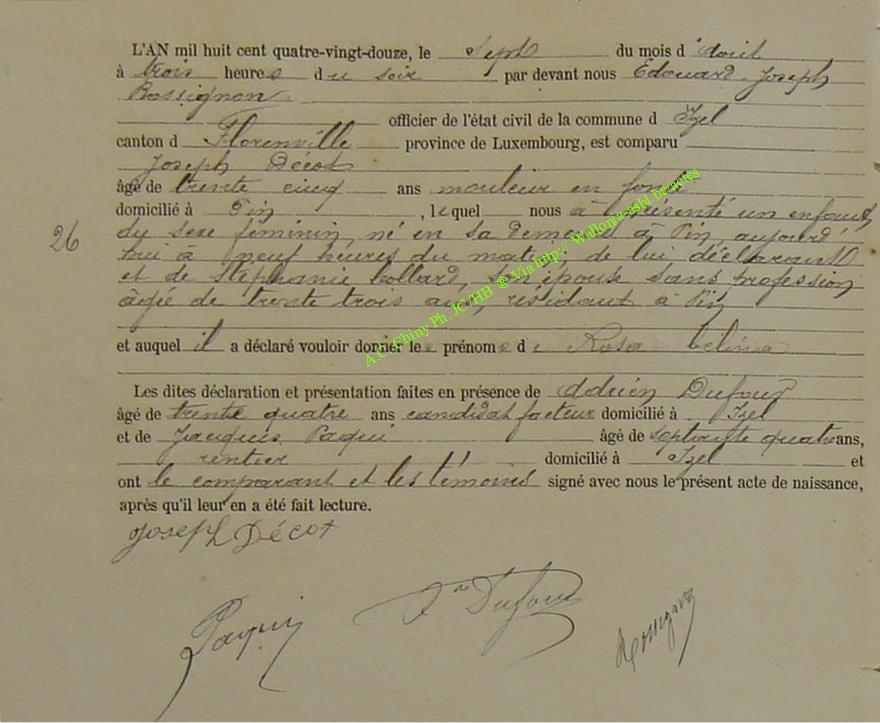 L'AN mil huit cent quatre-vingt-douze, le Sept du mois d'Aout
à trois heures du soir par devant nous Edouard Joseph
Rossignon
officier de l'état civil de la commune d Izel
canton d Florenville province de Luxembourg, est comparu
Joseph Décot
âgé de trente cinq ans mouleur en fonte
domicilié à Pin, lequel nous a présenté un enfant
26
du sexe féminin, né en sa demeure à Pin, aujourd'
hui à neuf heures du matin de lui, déclarant
et de Stéphanie Collard, son épouse sans profession
âgée de trente trois ans, résidant à Pin
et auquel il a déclaré vouloir donner le prénom de Rosa Célina
Les dites déclaration et présentation faites en présence de Adrien Dufour
âgé de trente quatre ans candidat facteur domicilié à Izel
et de Jacques Paqui âgé de septante quatre ans,
rentier domicilié à Izel et
ont le comparant et les témoins signé avec nous le présent acte de naissance,
après qu'il leur en a été fait lecture.
Joseph Décot
Paqui
Dufour
Rossignon
A.C. Chiny Ph. JC/HB @ Via http:// Wallonia-asbl benelces